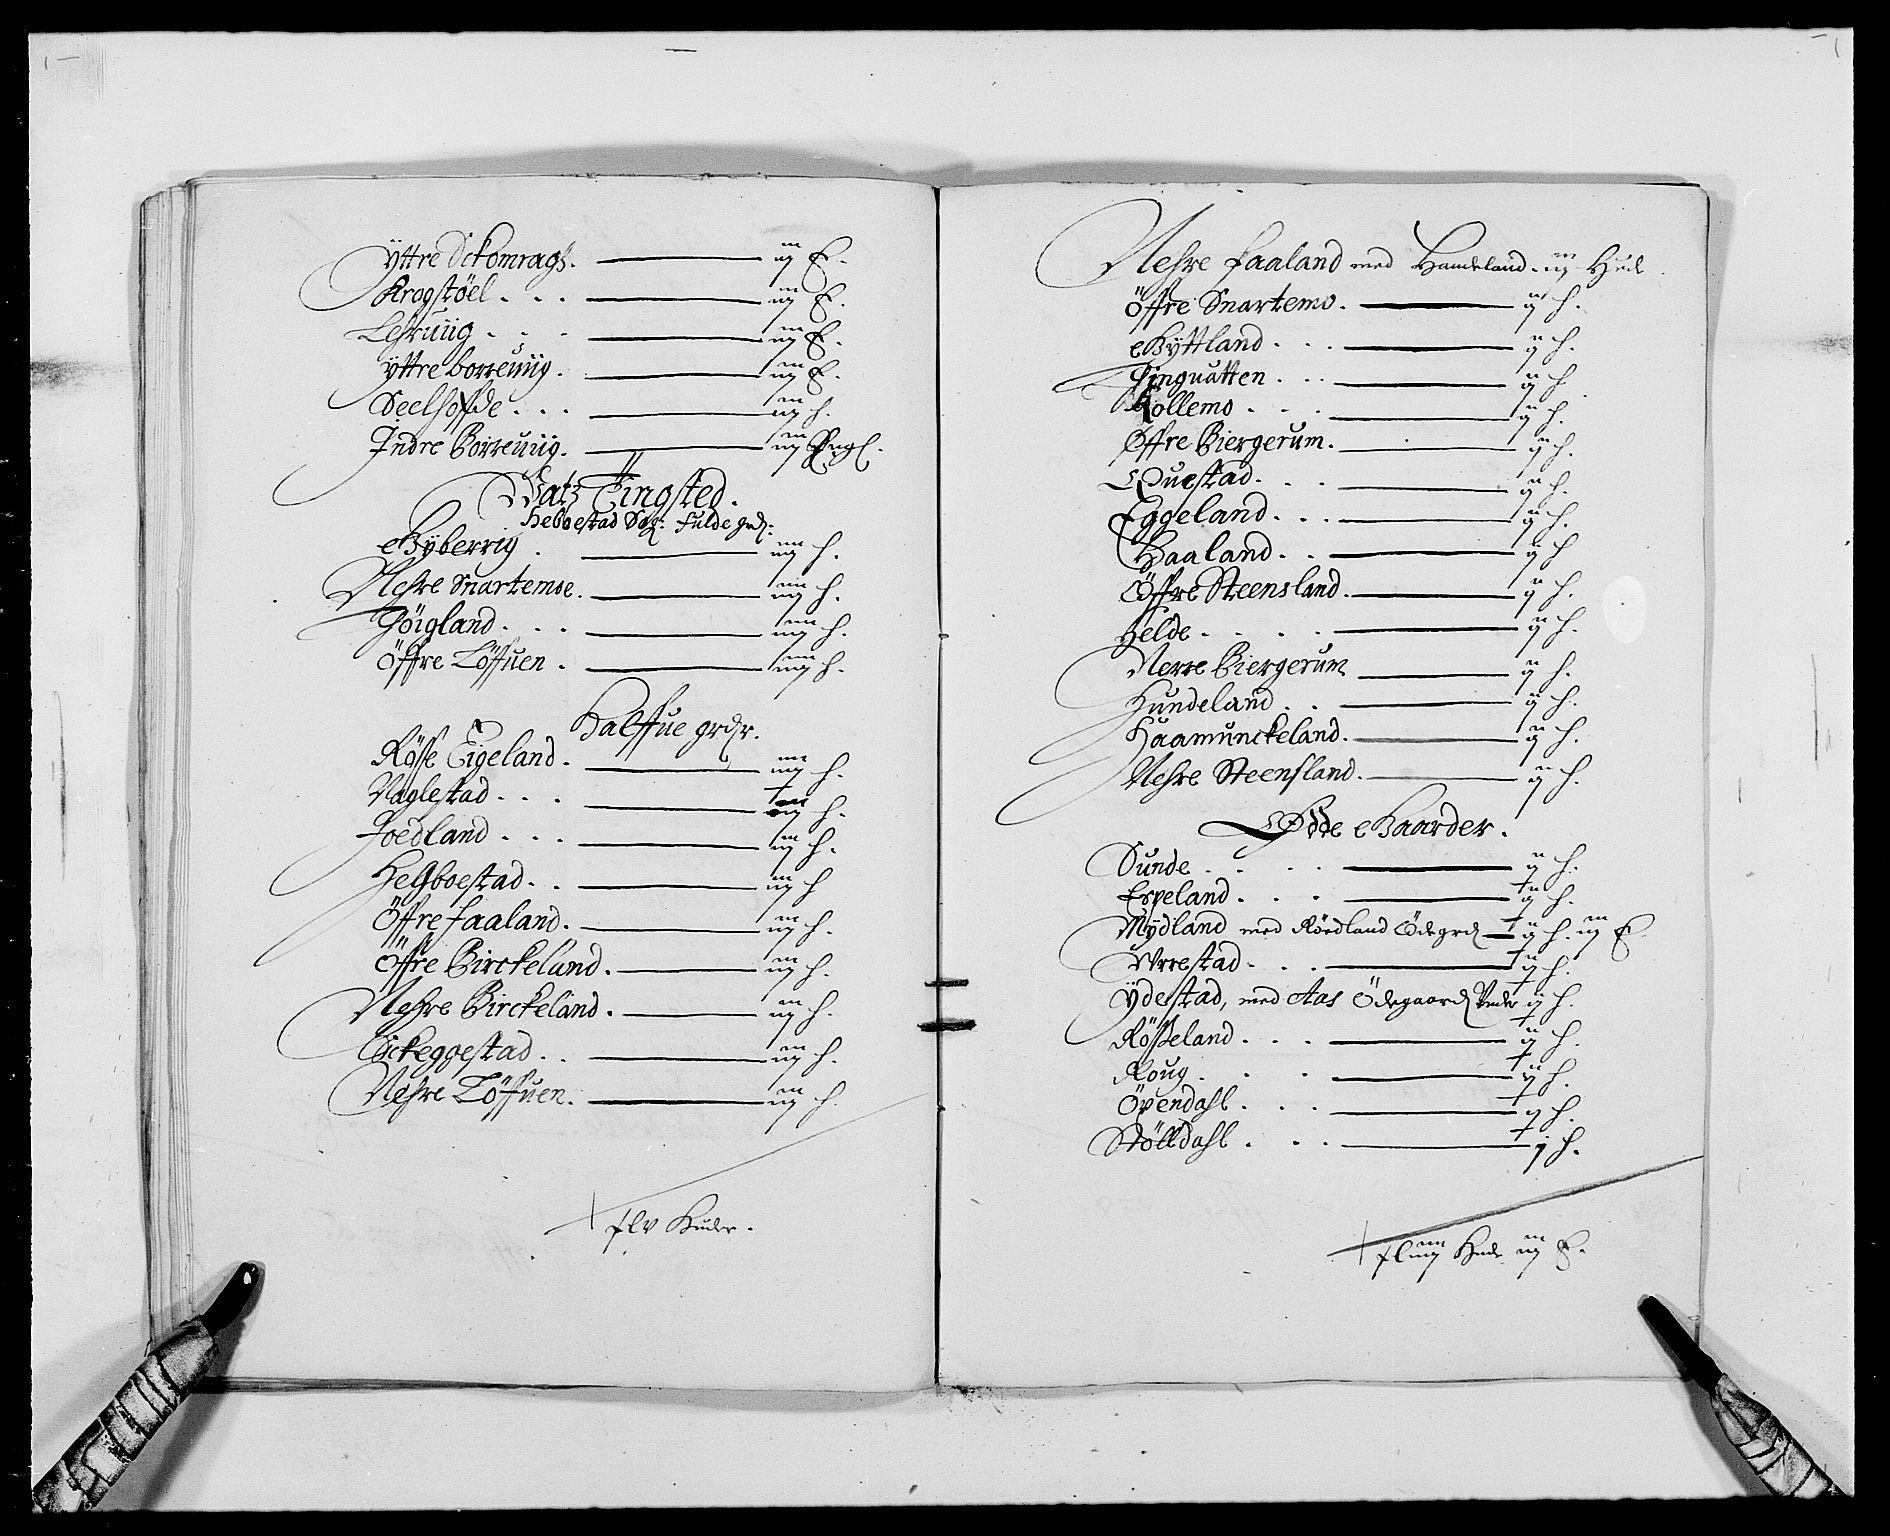 Ÿttre Øckomragh. iij E.
Krogstøel iij E.
Lehruiig iij E.
Ÿttre borreuiig. iij E.
Seelhofde iij h.
Indre Borreuiig. iij Engl.
Vatz Tingsted.
Heboestad Sog: Fulde grd:
Gÿberrig. iiij h.
Nehre Snartemoe. iiij h.
Høigland iiij h.
Öffre Löffuen. iiij h.
Halffue grdr.
Rösse Eigeland. iiij h.
Naglestad iij h.
Joedland iij h.
Hegboestad iij h
Öffre faaland. iij h.
Öffre Birckeland. iij h.
Nehre Birckeland. iij h.
Eickeggestad iij h.
Nehre Löffuen. iij h.
flv Huder.
Nehre faaland med Handeland. iij Hud
Öffre Snartemo. ij h.
Gÿttland ij h.
Tinguatten ij h
Kollemo ij h.
Øffre Biergerum. ij h.
Questad ij h.
Eggeland ij h.
Haaland ij h
Öffre Steensland. ij h.
Helde ij h.
Nerre Biergerum ij h.
Hundeland ij h.
Haamunckeland. ij h.
Nehre Steensland. ij h.
Ødde Gaarder.
Sunde ij h.
Erpeland ij h.
Mÿdland med Rördland Ödegrd ij h. iij E.
Vrrestad ij h.
Ÿdestad, med Aas Ödegaard Vnder ij h.
Rösseland ij h.
Roug ij h.
Öpendahl j h.
Stölldahl j h.
fliiij Hude iij E.